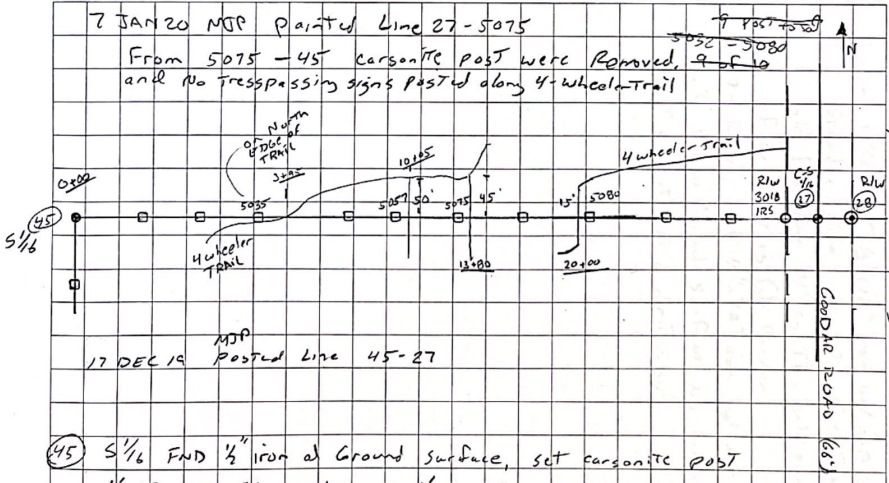 7 JAN 20 MJP Painted Line 27-5075
9 POST total
5032 - 5080
From 5075 - 45 carsonite post were Removed, 9 of 10
and No Tresspassing signs Posted along 4-wheeler Trail
N
North
EDGE of
TRAIL
0+00
10+05
4 wheeler Trail
45
S 1/16
5035
5057
50'
5075
45'
15'
5080
R/W
3018
IRS
C-S
1/16
27
R/W
28
4 wheeler
TRAIL
13+80
20+00
GOODAR ROAD (66')
MJP
17 DEC 19 Posted Line 45-27
45 S 1/16 FND 1/2" iron at Ground surface, set carsonite post